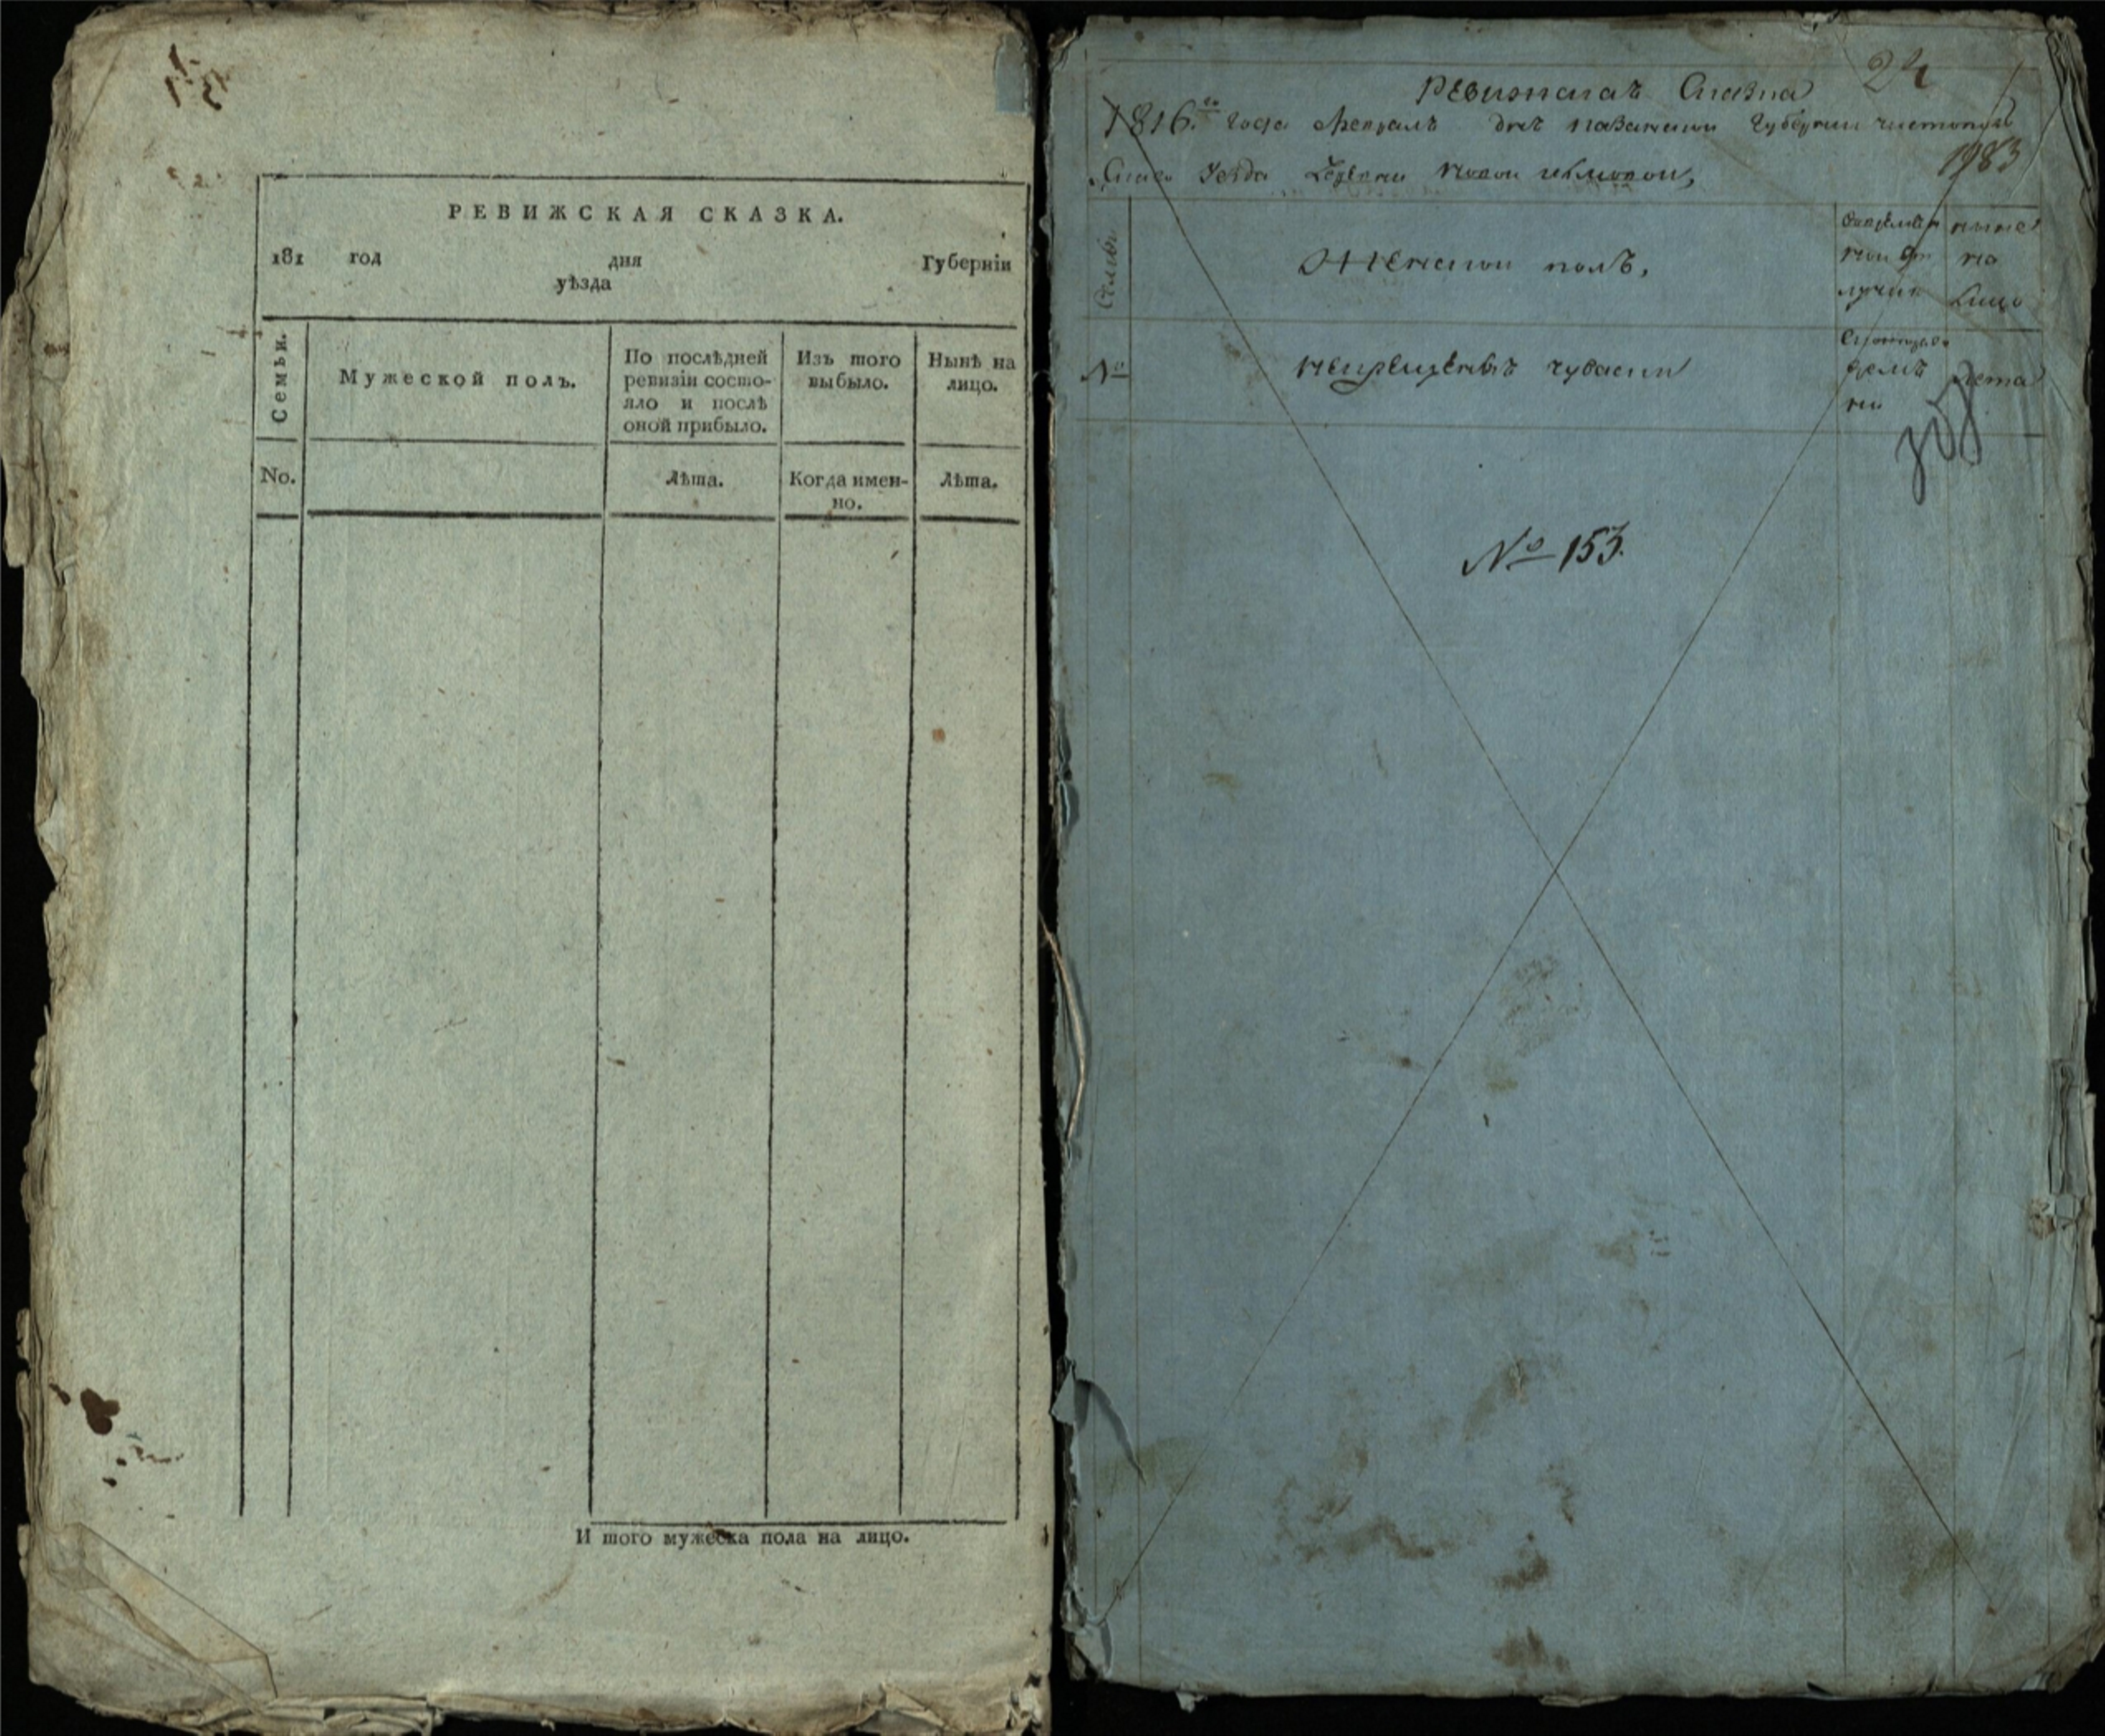 РЕВИЖСКАЯ СКАЗКА.
181 год дня Губерніи
уѣзда
Семьи.
Мужеской полъ.
По послѣдней ревизіи состо-
яло и послѣ
оной прибыло.
Изъ того
выбыло.
Нынѣ на
лицо.
No.
Лѣта.
Когда имен-
но.
Лѣта.
И того мужеска пола на лицо.
24
Ревизская Сказка
1816.го года Февраля дня Казанской Губернии чистополь
1983
скаго уезда деревни новой
Семьи
Женской полъ,
ныне
на
лицо
№
некрещеныхъ чувашъ
лета
№ 153.